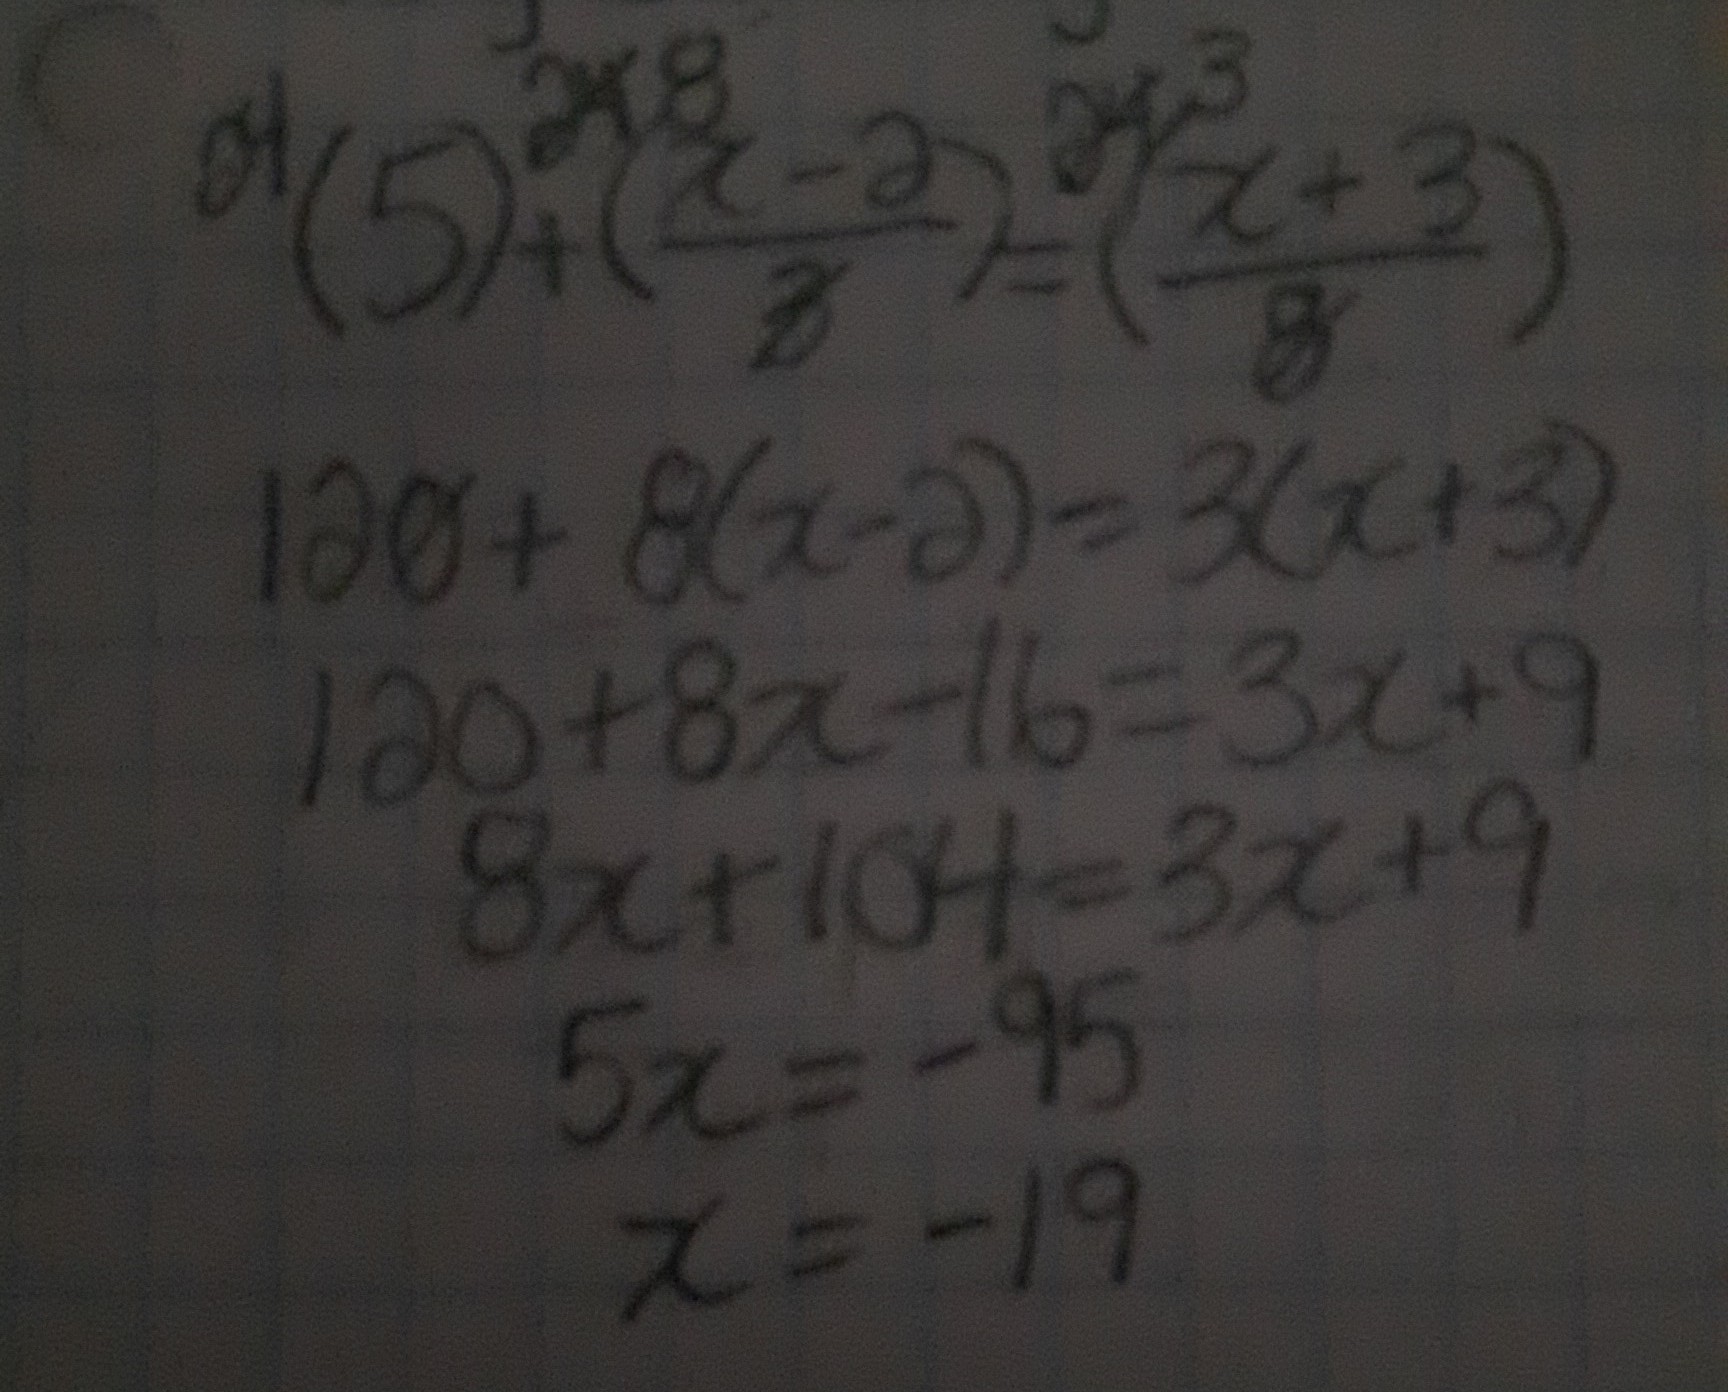 24(5)+24 8(x-2/3)=24 3(x+3/8)
120+ 8(x-2)=3(x+3)
120+8x-16=3x+9
8x+104=3x+9
5x=-95
x=-19